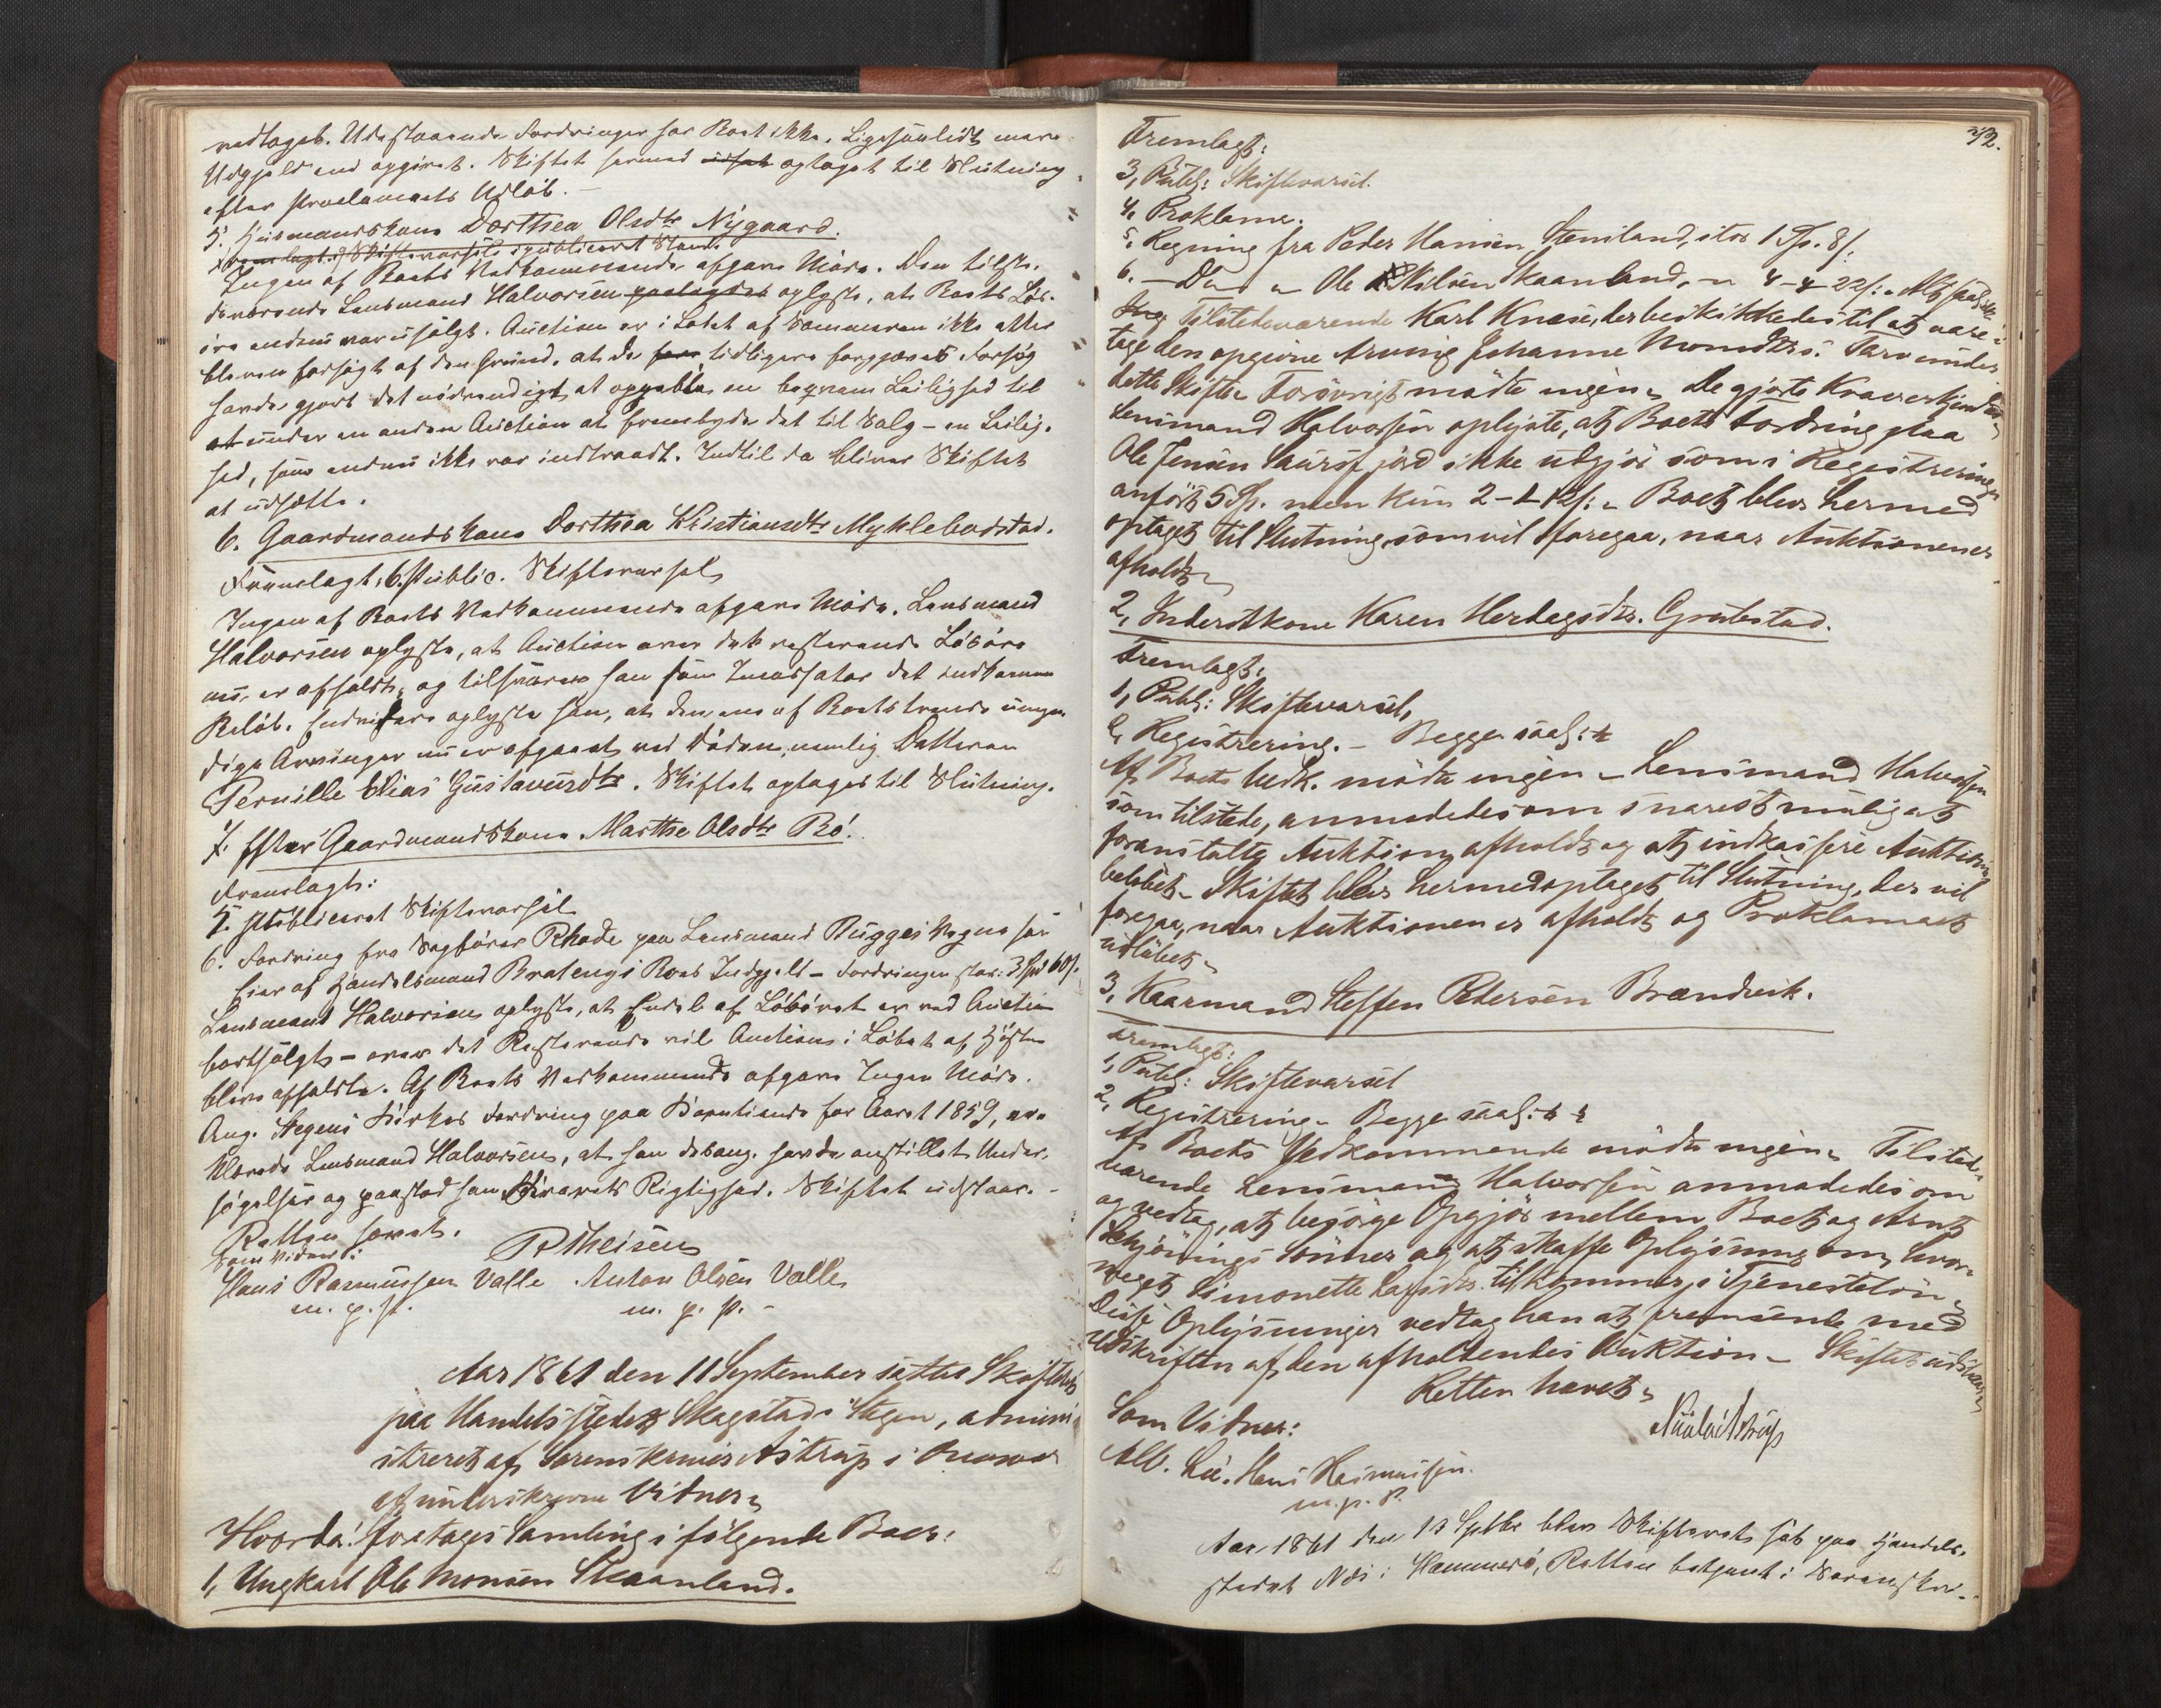 vedtaget. Udestaaende Fordringer har Boet ikke. Ligesaalidt mere
Udgjæld end opgivet. Skiftet hermed udsat optaget til Slutning
efter Proclamaets Udløb. –
5. Huusmandskone Dorthea Olsdtr Nÿgaard.
Fremlagt: 5) Skiftevarsels publiceret Stand.
Ingen af Boets Vedkommende afgave Møde. Den tilste-
deværende Lensmand Halvorsen paalagdes oplyste, at Boets Løs-
øre endnu var usolgt. Auction er i Løbet af Sommeren ikke atter
bleven forsøgt af den Grund, at de tidligere forgjæves Forsøg
havde gjort det nødvendigt at oppebie en beqvem Leilighed til
at under en anden Auction at frembyde det til Salg – en Leilig-
hed, som endnu ikke var indtraadt. Indtil da bliver Skiftet
at udsætte.
6. Gaardmandskone Dorthea Kristiansdtr Myklebostad.
Fremlagt: 6. Public. Skiftevarsel
Ingen af Boets Vedkommende afgave Møde. Lensmand
Halvorsen oplyste, at Auction over det resterende Løsøre
nu er afholdt, og tilsvarer han som Incassator det indkomne
Beløb. Endvidere oplyste han, at den ene af Boets trende umyn-
dige Arvinger nu er afgaaet ved Døden, nemlig Datteren
Pernille Elias Gustavusdtr. Skiftet optages til Slutning.
7. Efter Gaardmandskone Marthe Olsdtr Bø.
Fremlagt:
5. Publiceret Skiftevarsel
6. Fordring fra Sagfører Rhode paa Lensmand Bugges Vegne som
Eier af Handelsmand Bratengs Boes Indgjeld – Fordringen stor: 3 Spd 60 s.
Lensmand Halvorsen oplyste, at Endel af Løsøret er ved Auction
bortsolgt – over det Resterende vil Auction i Løbet af Høsten
blive afholdt. Af Boets Vedkommende afgave Ingen Møde.
Ang. Stegens Kirkes Fordring paa Korntiende for Aaret 1859, er-
klærede Lensmand Halvorsen, at han desang. havde anstillet Under-
søgelser og paastod han Kravets Rigtighed. Skiftet udstaar. –
Retten hævet.
Som Vidner: RTheisen
Hans Rasmussen Valle Anton Olsen Valle
m. p. P. m. p. P. –
Aar 1861 den 11 September sattes Skifteret
paa Handelsstedet Skagstad i Stegen, admini-
streret af Sorenskriver Astrup i Overvær
af underskrevne Vidner
Hvorda: foretages Samling i følgende Boer:
1, Ungkarl Ole Monsen Skaanland.
32.
Fremlagt:
3, Publ: Skiftevarsel.
4. Proklama.
5. Regning fra Peder Hansen Stensland, stor 1 Sp. 8 s.
6. – Do – Ole Nilsen Skaanland, – 4–4–22 s: Alt saal.
Ing Tilstedeværende Karl Knæse, der beskikkedes til at vare-
tage den opgivne Arving Johanne Monsdtrs. Tarv under
dette Skifte. Forøvrigt mødte ingen. De gjorte Krav erkjendtes
Lensmand Halvorsen oplyste, at Boets Fordring paa
Ole Jensen Laursfjord ikke udgjør som i Registreringen
anført 5 Sp. men kun 2–2–12 s: Boet blev hermed
optaget til Slutning, som vil foregaa, naar Auktionen er
afholdt
2, Inderstkone Karen Herlegsdtr. Grøtestad.
Fremlagt:
1, Publ: Skiftevarsel,
2, Registrering. – Begge saal:
Af Boets Vedk. mødte ingen – Lensmand Halvorsen
som tilstede, anmodedes om snarest muligat
foranstalte Auktion afholdt og at indkassere Auktions-
beløbet. Skiftet blev hermed optaget til Slutning, der vil
foregaa, naar Auktionen er afholdt og Proklamaet
udløbet
3, Kaarmand Steffen Petersen Brændvik.
Fremlagt:
1, Publ: Skiftevarsel
2, Registrering. Begge saal:
Af Boets Vedkommende mødte ingen. Tilstede-
værende Lensmand Halvorsen anmodedes om
og vedtog, at besørge Opgjør mellem Boet og Arnt
Skjønings Sønner og at skaffe Oplysning om, hvor-
meget Simonette tilkommer i Tjenesteløn
Disse Oplysninger vedtog han at fremsende med
Udskriften af den afholdendes Auktion – Skiftet udstaar
Retten hævet.
Som Vidner:
Hans Rasmussen
m. p. P.
Aar 1861 den 13 Septbr blev Skifteret sat paa Handels-
stedet Næs i Hammerø, Retten betjent i Sorenskri-